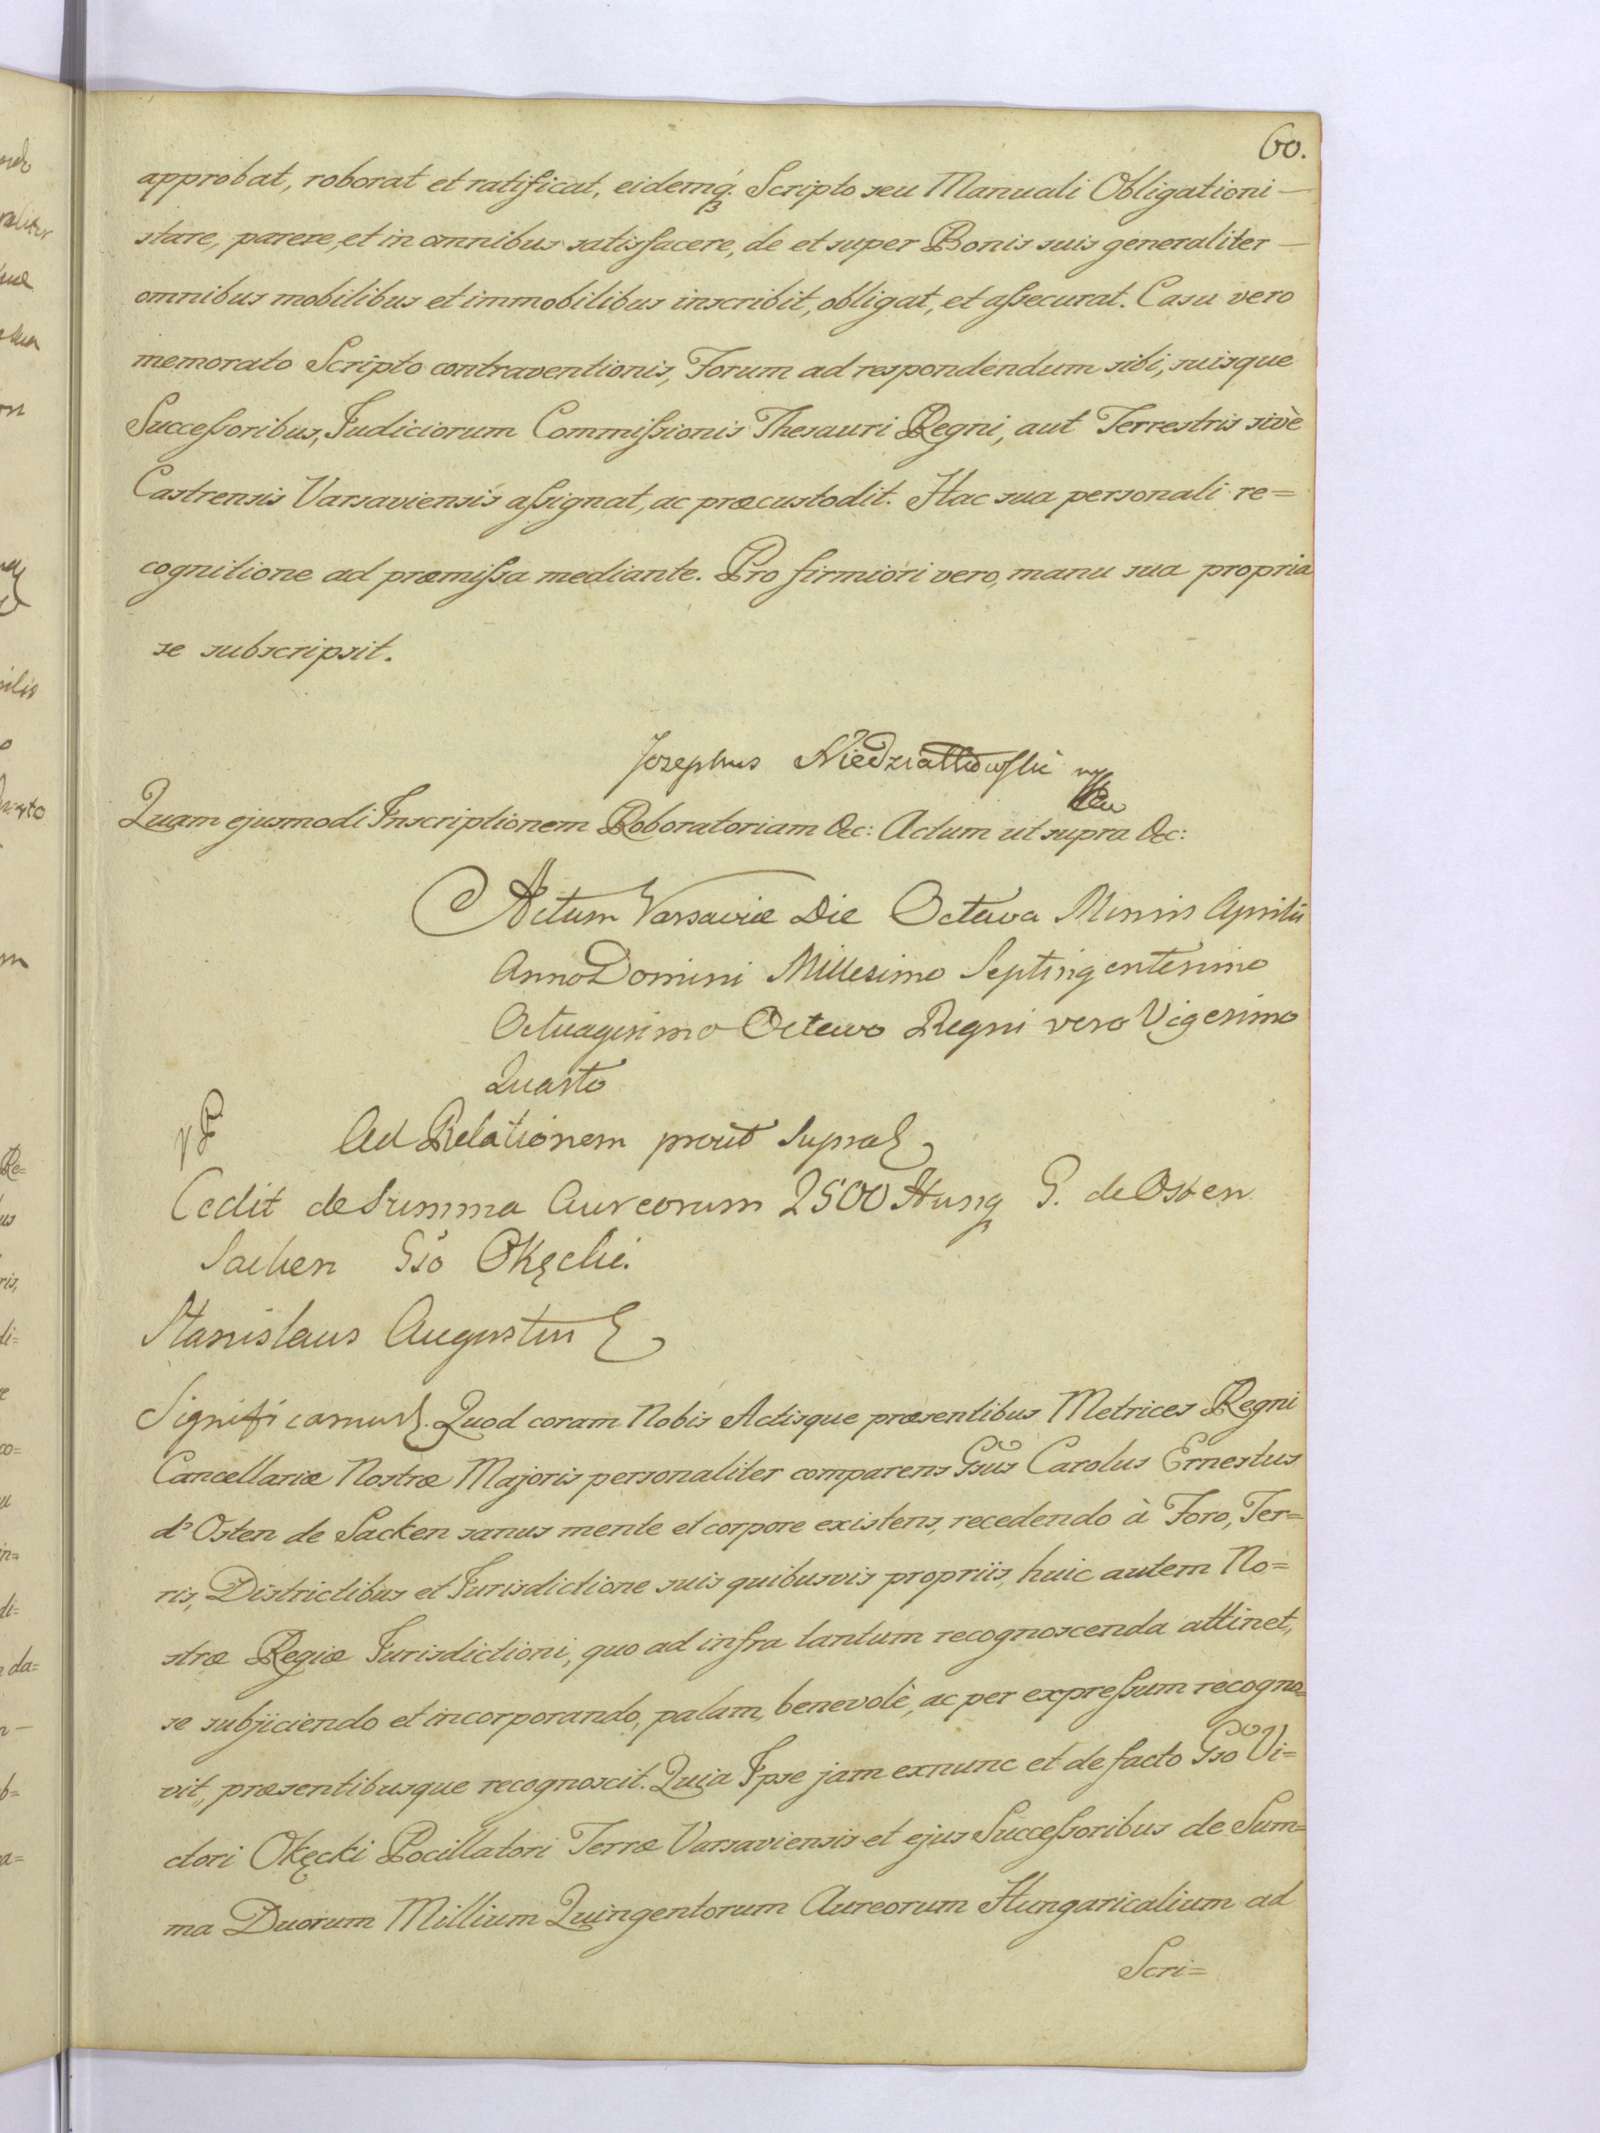 60.
approbat, roborat et ratificat, eidemq́ꝫ. Scripto seu Manuali Obligationi —
stare, parere, et in omnibus satisfacere, de et super Bonis suis generaliter —
omnibus mobilibus et immobilibus inscribit, obligat, et aſsecurat. Casu vero
memorato Scripto contraventionis, Forum ad respondendum sibi, suisque
Succeſsoribus, Judiciorum Commiſsionis Thesauri Regni, aut Terrestris sivè
Castrensis Varsaviensis aſsignat, ac præcustodit. Hac sua personali re=
cognitione ad præmiſsa mediante. Pro firmiori vero, manu sua propria
se subscripsit.
Jozephus Niedzialkowski
Quam ejusmodi Inscriptionem Roboratoriam &c: Actum ut supra &c:
Actum Varsaviæ Die Octava Mensis Aprilis
Anno Domini Millesimo Septingentesimo
Octuagesimo Octavo Regni vero Vigesimo
Quarto
Ad Relationem prout supra
Cedit de Summa Aureorum 2500 Hung G. de Osten
Sacken Gso Okęcki.
Stanislaus Augustus
Significamus. Quod coram Nobis Actisque præsentibus Metrices Regni
Cancellariæ Nostræ Majoris personaliter comparens Gsus Carolus Ernestus
d'Osten de Sacken sanus mente et corpore existens, recedendo à Foro, Ter=
ris, Districtibus et Jurisdictione suis quibusvis propriis, huic autem No=
stræ Regiæ Jurisdictioni, quo ad infra tantum recognoscenda attinet,
se subjiciendo et incorporando, palam, benevolè, ac per expreſsum recogno=
vit, præsentibusque recognoscit. Quia Ipse jam exnunc et de facto Gso Vi=
ctori Okęcki Pocillatori Terræ Varsaviensis et ejus Succeſsoribus de Sum=
ma Duorum Millium Quingentorum Aureorum Hungaricalium ad
Scri=